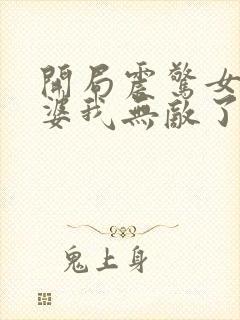 開局震驚女
婆我無敵了
鬼上身